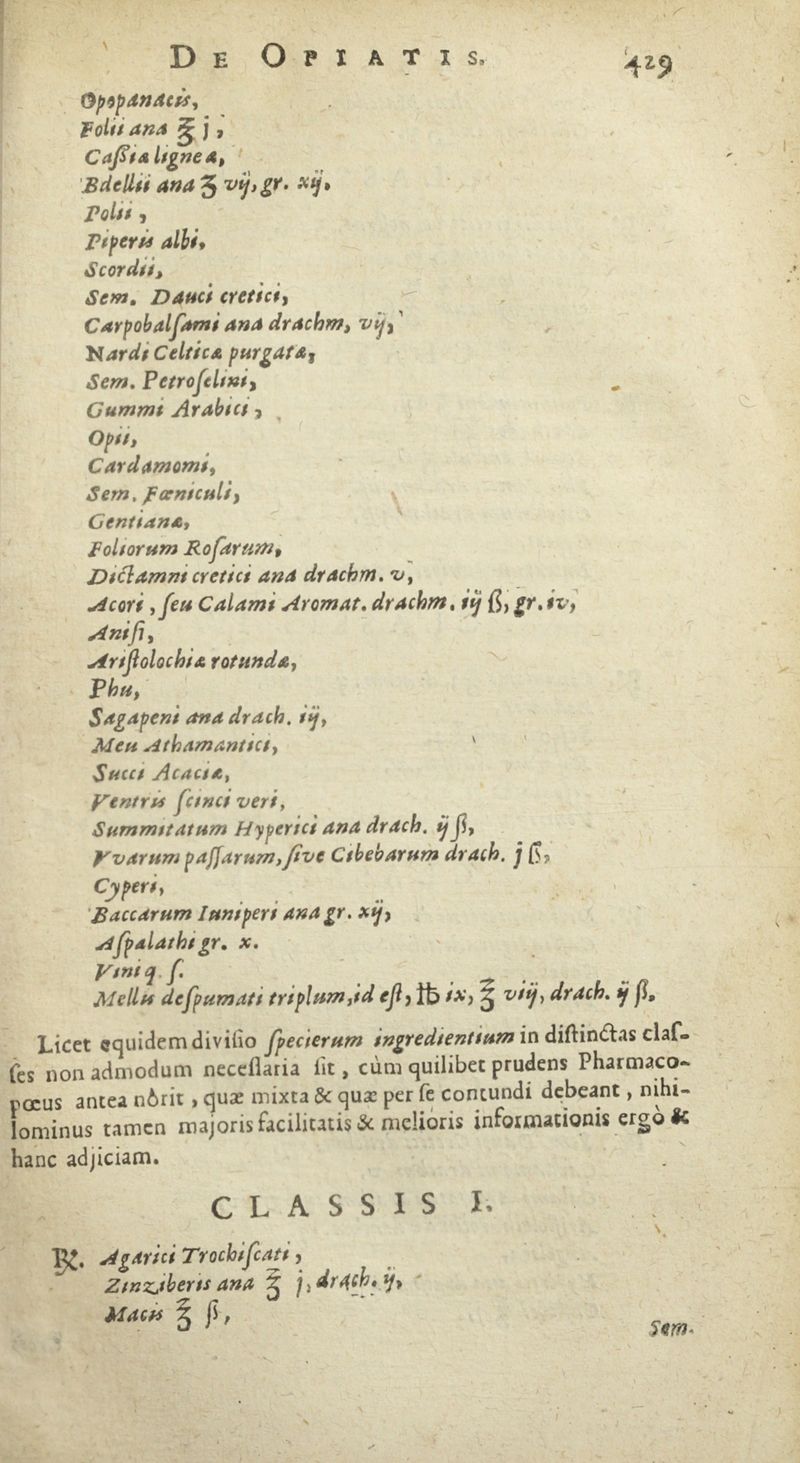 DE OPIATIS. 429
Opopanacis,
Folii ana ℥ j,
Caſſia ligneæ,
Bdellii ana ʒ vij, gr. xij.
Polii,
Piperis albi,
Scordii,
Sem. Dauci cretici,
Carpobalſami ana drachm, vij,
Nardi Celticæ purgatæ,
Sem. Petroſelini,
Gummi Arabici,
Opii,
Cardamomi,
Sem. Fœniculi,
Gentianæ,
Foliorum Roſarum,
Dictamni cretici ana drachm. v,
Acori, ſeu Calami Aromat. drachm. iij ß, gr. iv,
Aniſi,
Ariſtolochiæ rotundæ,
Phu,
Sagapeni ana drach. iij,
Meu Athamantici,
Succi Acaciæ,
Ventris ſcinci veri,
Summitatum Hyperici ana drach. ij ß,
Vvarum paſſarum, ſive Cibebarum drach. j ß,
Cyperi,
Baccarum Iuniperi ana gr. xij,
Aſpalathi gr. x.
Vini q. ſ.
Mellis deſpumati triplum, id eſt, ℔ ix, ℥ viij, drach. ij ß.
Licet equidem diviſio ſpecierum ingredientium in diſtinctas claſ-
ſes non admodum neceſſaria ſit, cùm quilibet prudens Pharmaco-
pœus antea nôrit, quæ mixta & quæ per ſe contundi debeant, nihi-
lominus tamen majoris facilitatis & melioris informationis ergò &
hanc adjiciam.
CLASSIS I.
℞. Agarici Trochiſcati,
Zinziberis ana ℥ j, drach. ij,
Macis ℥ ß,
Sem.